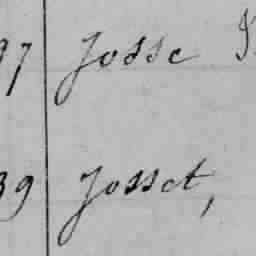 97 Josse
39 Josset,